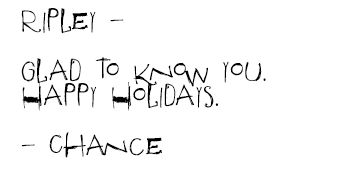 RIPLEY –
GLAD TO KNOW YOU.
HAPPY HOLIDAYS.
– CHANCE